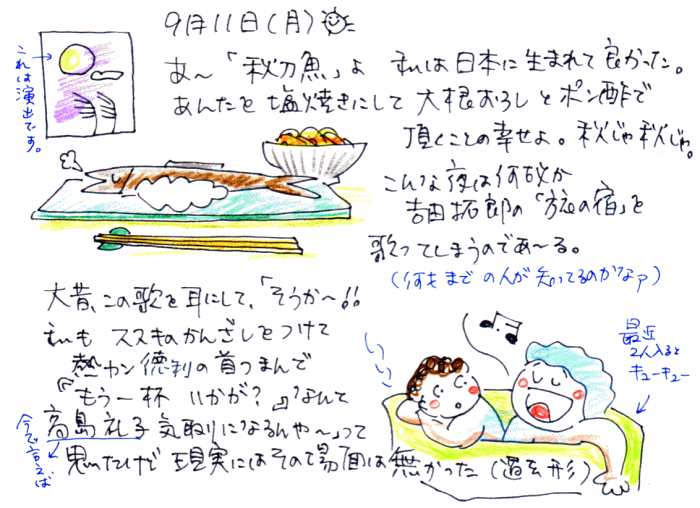 9月11日(月)
あ〜「秋刀魚」よ 私は日本に生まれて良かった。
あんたを塩焼きにして大根おろしとポン酢で
頂くことの幸せよ。秋じゃ秋じゃ。
こんな夜は何故か
吉田拓郎の「旅の宿」を
歌ってしまうのであ〜る。
(何才までの人が知ってるのかなァ)
これは演出です。
大昔、この歌を耳にして、「そうか〜!!
私も ススキのかんざしをつけて
熱カン徳利の首つまんで
『もう一杯 いかが?』なんて
高島礼子気取りになるんや〜」って
思ったけど 現実にはその場面は無かった(過去形)
今で言えば
いいこ
最近
2人入ると
キューキュー